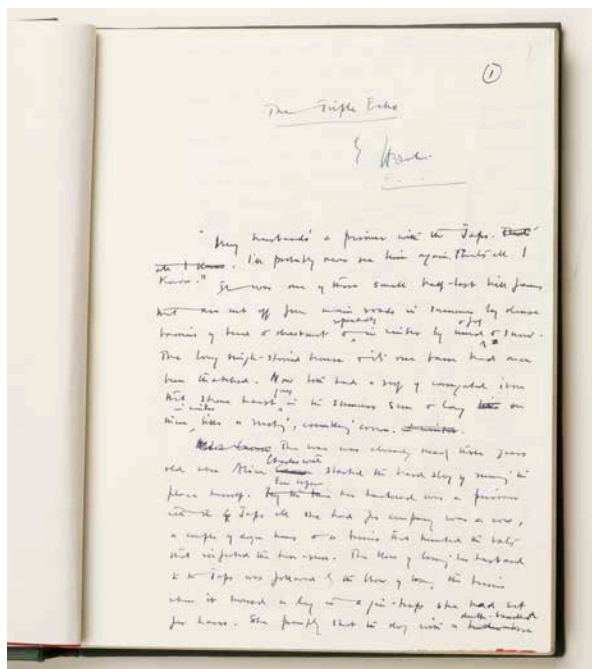 ①
The Triple Echo
"My husband's a prisoner with the Japs. That's
all I know. I'll probably never see him again. That's all I
know."
It was one of those small half-lost hill farms
that are cut off from main roads in summer by dense
barriers of and chestnut in winter by mud or snow.
The long single-storied house with one barn had once
been thatched. Now both had a roof of corrugated iron
that shone in the summer sun & lay on
in winter
like a rusty, crumbling
The war was already nearly three years
old when Alice Charlesworth started the hard slog of running the
place herself. her husband was a prisoner
with the Japs all she had for company was a cow,
a couple of dozen hens & a terrier that hunted the rats
that infested the hen-run. The blow of losing her husband
to the Japs was followed by the blow of losing the terrier
when it a leg in a gin-trap she had set
for hares. She promptly shot the dog with a